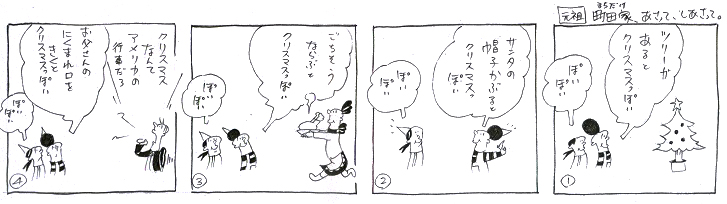 元祖 町田家、あさって、しあさって。
まちだけ
ツリーが
あると
クリスマスっぽい
ぽい
ぽい
①
サンタの
帽子かぶると
クリスマスっぽい
ぽい
ぽい
②
ごちそう
ならぶと
クリスマスっぽい
ぽい
ぽい
③
クリスマス
なんて
アメリカの
行事だろ
お父さんの
にくまれ口を
きくと
クリスマスっぽい
ぽい
ぽい
④